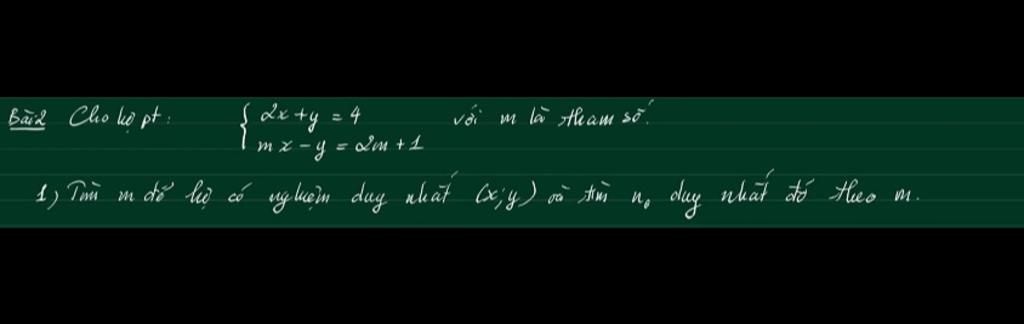 Bài 2 Cho hệ pt: { 2x + y = 4 với m là tham số.
mx - y = 2m + 1
1) Tìm m để hệ có nghiệm duy nhất (x; y) và tìm n₀ duy nhất đó theo m.